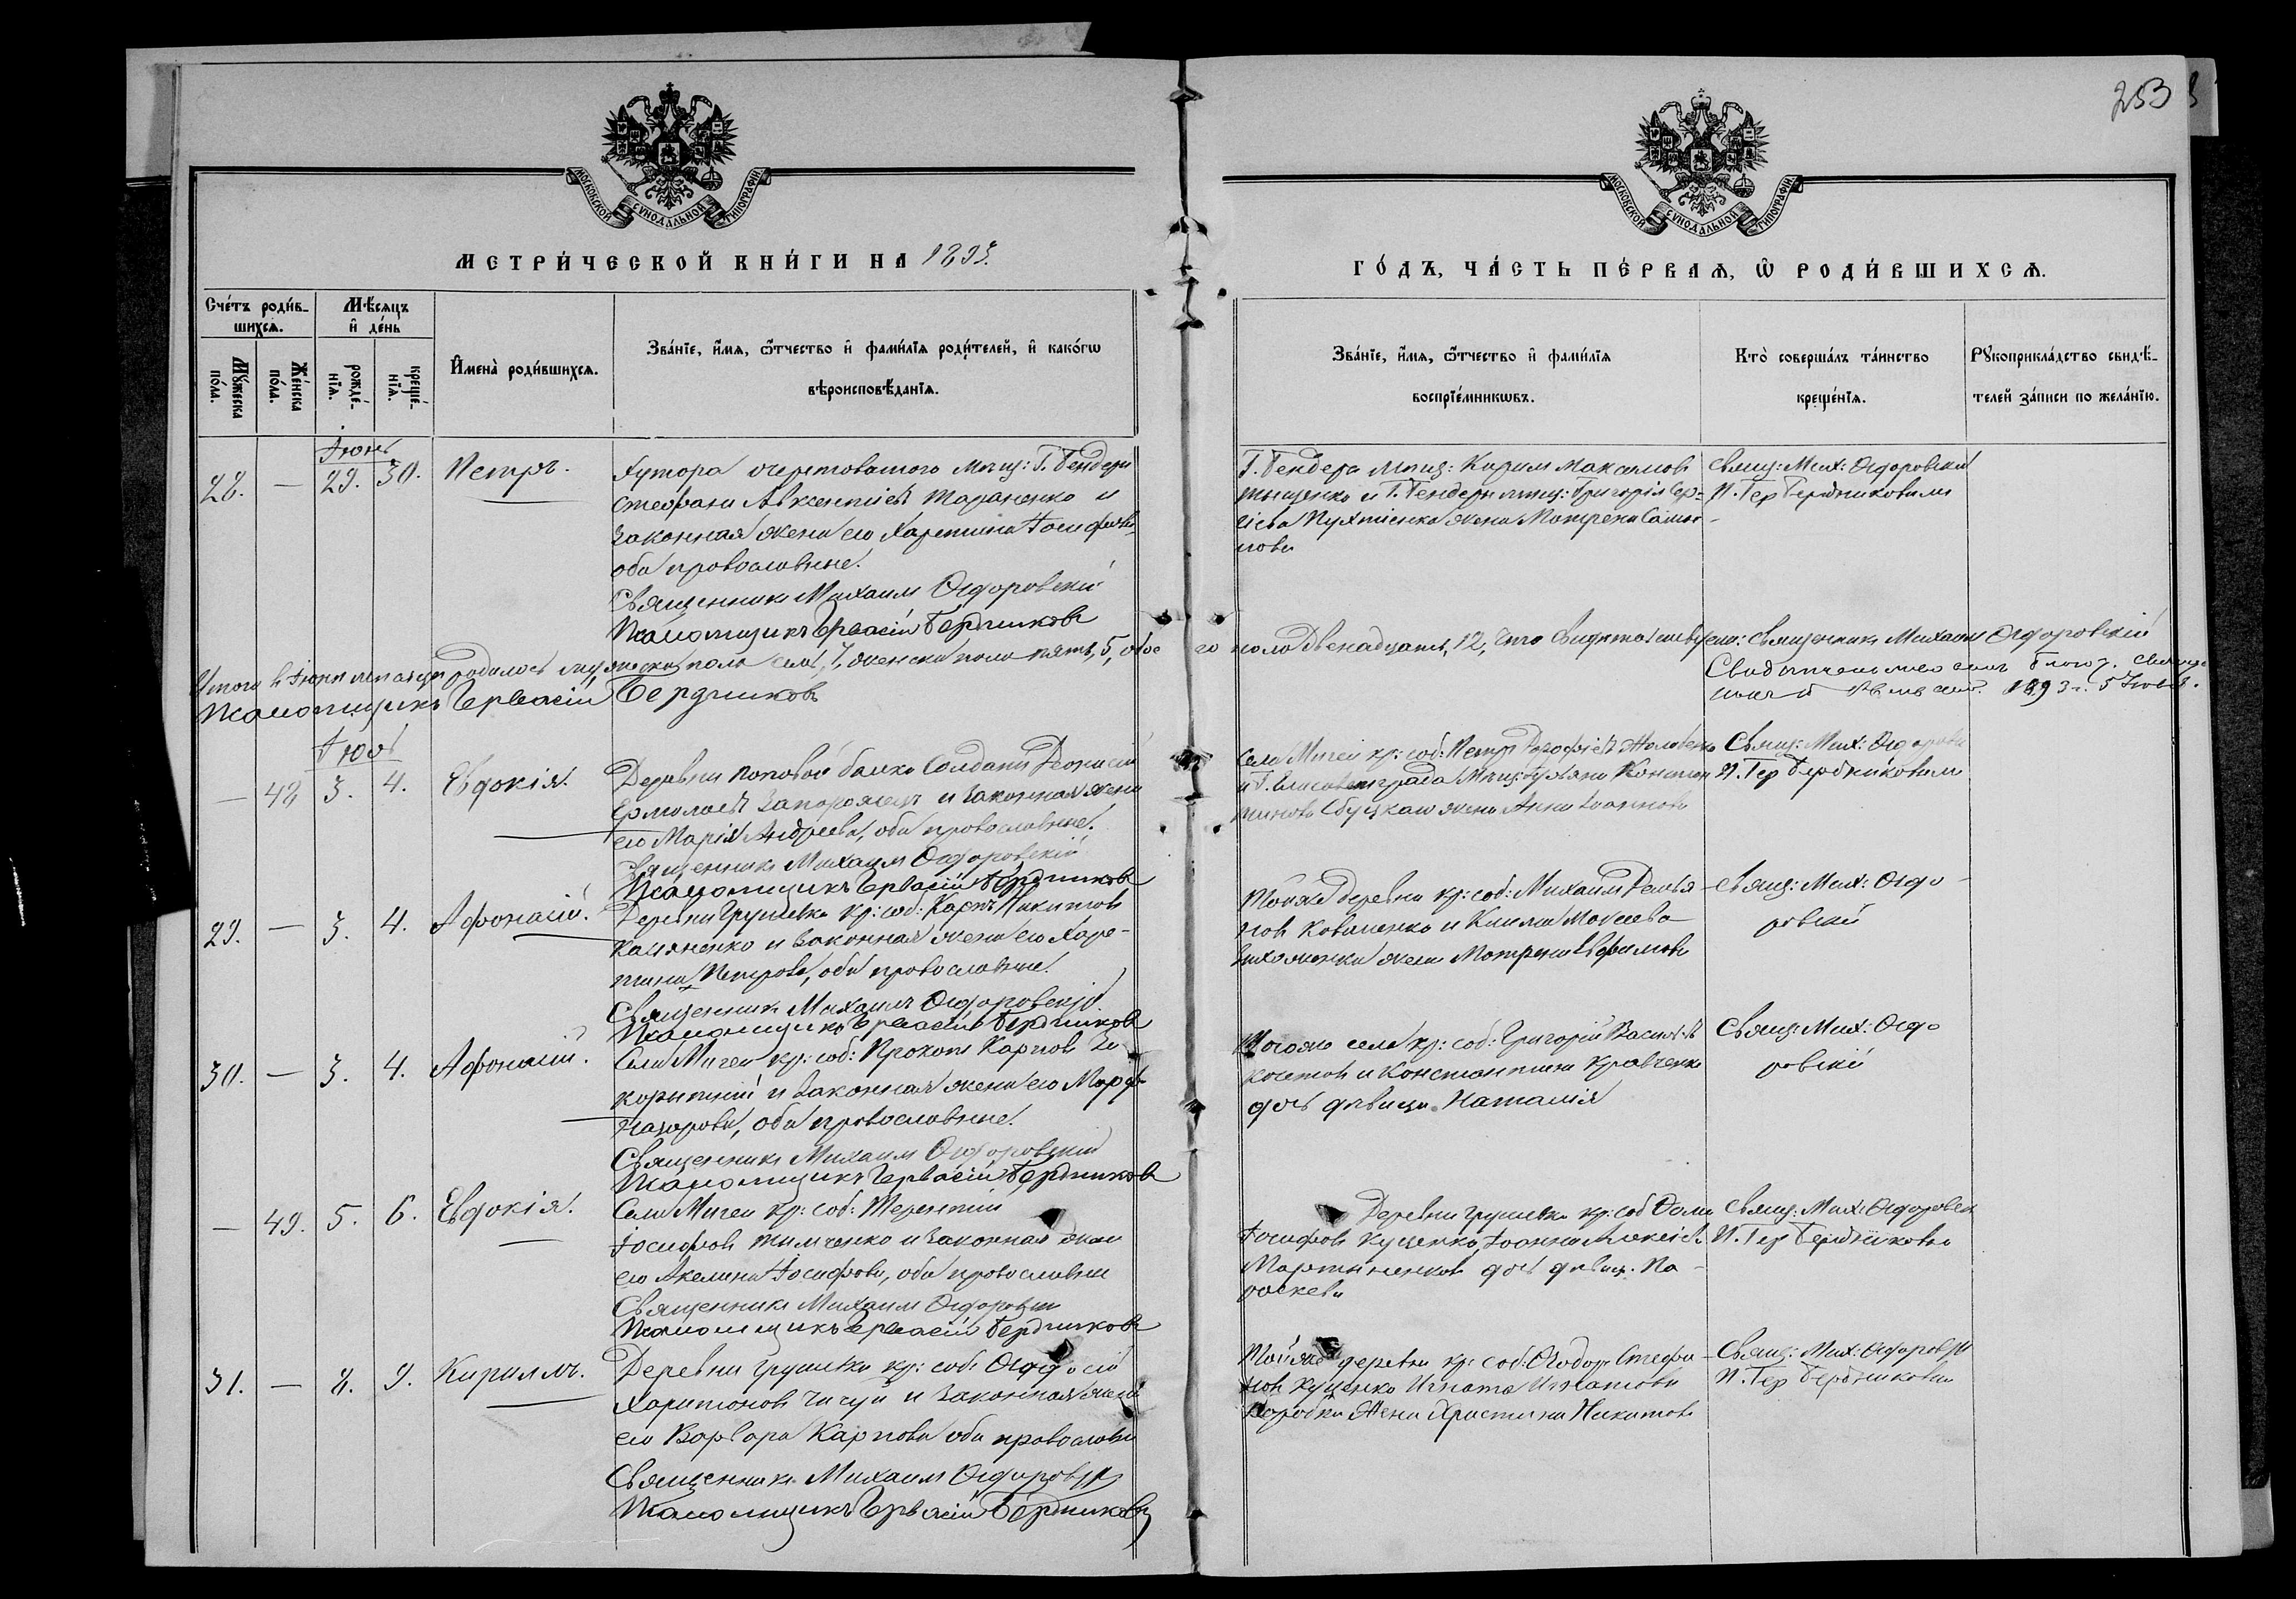 253
МОСКОВСКОЙ СѴНОДАЛЬНОЙ ТИПОГРАФІИ
МОСКОВСКОЙ СѴНОДАЛЬНОЙ ТИПОГРАФІИ
МЕТРИ́ЧЕСКОЙ КНИ́ГИ НА 1893.
ГО́ДЪ, ЧА́СТЬ ПЕ́РВАѦ, Ѡ РОДИ́ВШИХСѦ.
Сче́тъ роди́в-
шихсѧ.
Мѣ́сѧцъ
и де́нь
Мꙋ́жеска
по́ла.
Же́нска
по́ла.
рожде́-
нїѧ.
креще́-
нїѧ.
И҆мена̀ роди́вшихсѧ.
Зва́нїе, и҆́мѧ, ѻ҆́тчество и҆ фами́лїѧ роди́телей, и҆ како́гѡ
вѣроисповѣ́данїѧ.
Зва́нїе, и҆́мѧ, ѻ҆́тчество и҆ фами́лїѧ
воспрїе́мникѡвъ.
Кто̀ соверша́лъ та́инство
креще́нїѧ.
Рꙋкоприкла́дство свидѣ́-
телей за́писи по жела́нїю.
Іюнь
28. — 29. 30. Петръ.
Хутора очеретоватого мѣщ: Г. Бендеръ
Стефанъ Авксентіевъ Тараненко и
законная жена его Харитина Іосифова
оба православные.
Священникъ Михаилъ Ѳедоровскій
Псаломщикъ Гервасій Бердниковъ
Г. Бендеръ мѣщ: Кирилъ Максимовъ
Тищенко и Г. Бендеръ мѣщ: Григорія Сер-
гіева жена Матрена
Свящ: Мих: Ѳедоровскій
П. Гер Бердниковъ
Итого въ Іюнѣ мѣсяцѣ родилось мужеска пола семь, 7, женска пола пять, 5, обоего пола двенадцать, 12, Священникъ Михаилъ Ѳедоровскій
Псаломщикъ Гервасій Бердниковъ
1893 г. 5 Іюля.
Іюль
— 48 3. 4. Евдокія.
Деревни Поповой балки Солдатъ Діонисій
Ермолаевъ Запорожецъ и законная жена
его Марія Андреева, оба православные.
Священникъ Михаилъ Ѳедоровскій
Псаломщикъ Гервасій Бердниковъ
Села Мигеи кр: соб: Петръ
и Г. Елисаветграда Мѣщ: Констан
тинова жена Анна Іоаннова
Свящ: Мих: Ѳедоровскій
П. Гер Бердниковъ
29. — 3. 4. Афонасій.
Деревни Грушевки кр: соб: Карпъ Никитовъ
Касяненко и законная жена его Харе-
тина Петрова, оба православные.
Священникъ Михаилъ Ѳедоровскій
Псаломщикъ Гервасій Бердниковъ
Тойже деревни кр: соб: Михаилъ Демья-
новъ Коваленко и Клима Моисеева
жена Матрена Евфимова
Свящ: Мих: Ѳедо-
ровскій
30. — 3. 4. Афонасій.
Села Мигеи кр: соб: Прокопъ Карповъ За
и законная жена его Марфа
Назарова, оба православные.
Священникъ Михаилъ Ѳедоровскій
Псаломщикъ Гервасій Бердниковъ
Тогоже села кр: соб: Григорій Васильевъ
и Константина Кравченка
дочь дѣвица Наталія
Свящ: Мих: Ѳедо-
ровскій
— 49. 5. 6. Евдокія.
Села Мигеи кр: соб: Терентій
Іосифовъ Тимченко и законная жена
его Акелина Іосифова, оба православные
Священникъ Михаилъ Ѳедоровскій
Псаломщикъ Гервасій Бердниковъ
Деревни Грушевки кр: соб Ѳома
Іосифовъ Куценко, Іоанна Алексіева
Мартыненкова дочь дѣвиц. Па-
раскева
Свящ: Мих: Ѳедоровскій
П. Гер Бердниковъ
31. — 8. 9. Кириллъ.
Деревни Грушевки кр: соб: Ѳеодосій
Харитоновъ Чигуй и законная жена
его Варвара Карпова оба православные
Священникъ Михаилъ Ѳедоровскій
Псаломщикъ Гервасій Бердниковъ
Тойже деревни кр: соб: Ѳеодоръ Стефа-
новъ Куценко Игната Игнатова
Коробки жена Христина Никитова
Свящ: Мих: Ѳедоровскій
П. Гер Бердниковъ